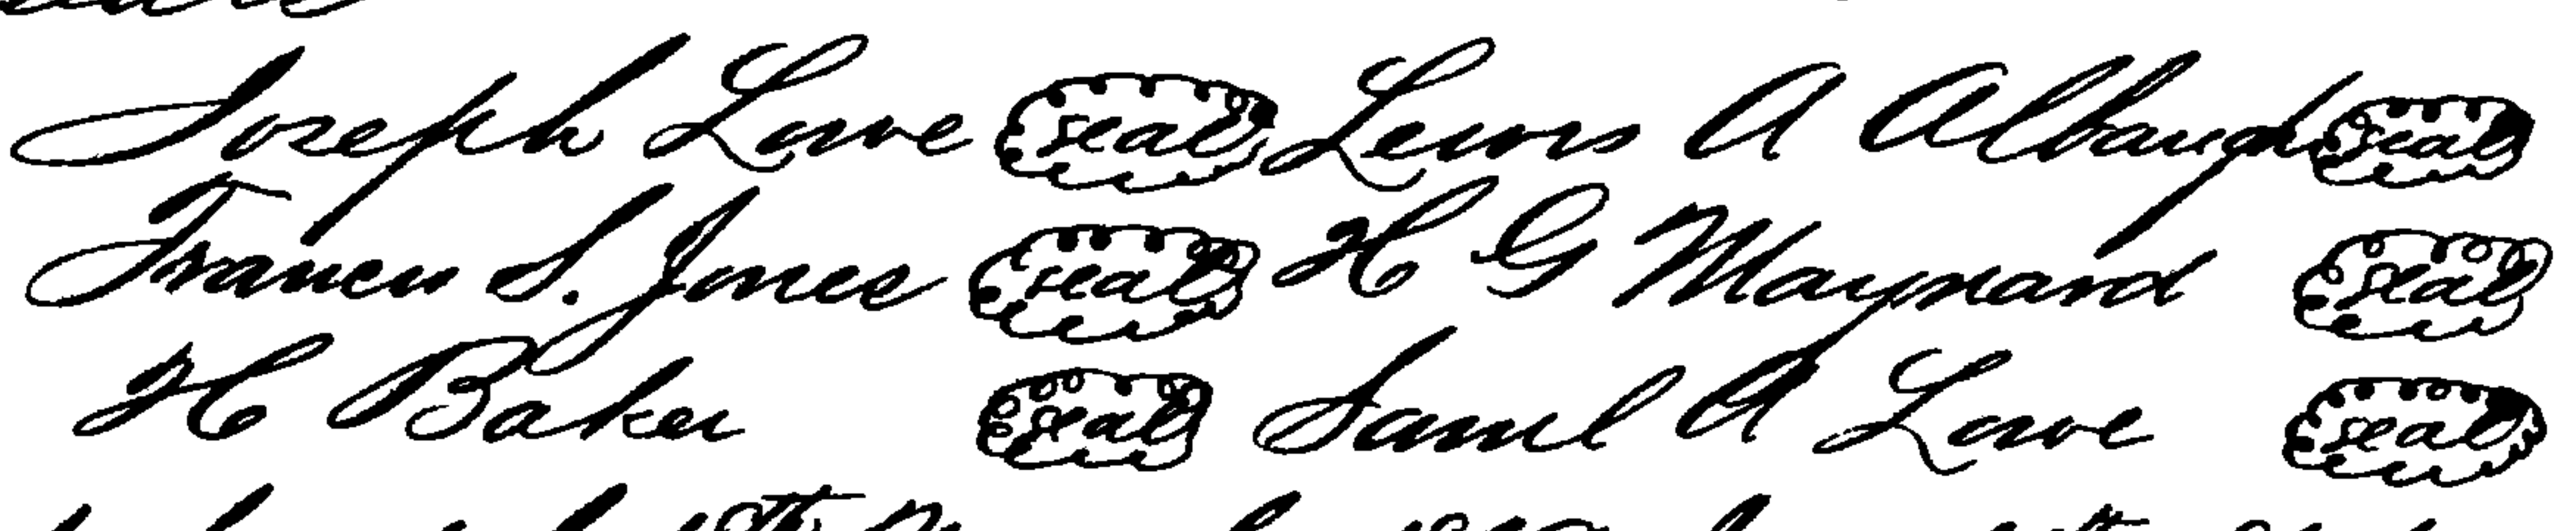 Joseph Lowe seal Lewis A Albaugh seal
Francis S. Jones seal H G Maynard seal
H Baker seal Saml A Lowe seal